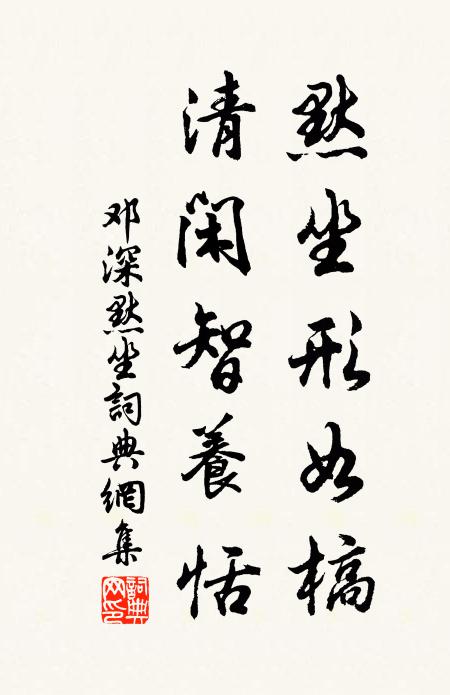 默坐形如槁
清閑智養恬
邓深默坐詞典網集
詞典网印